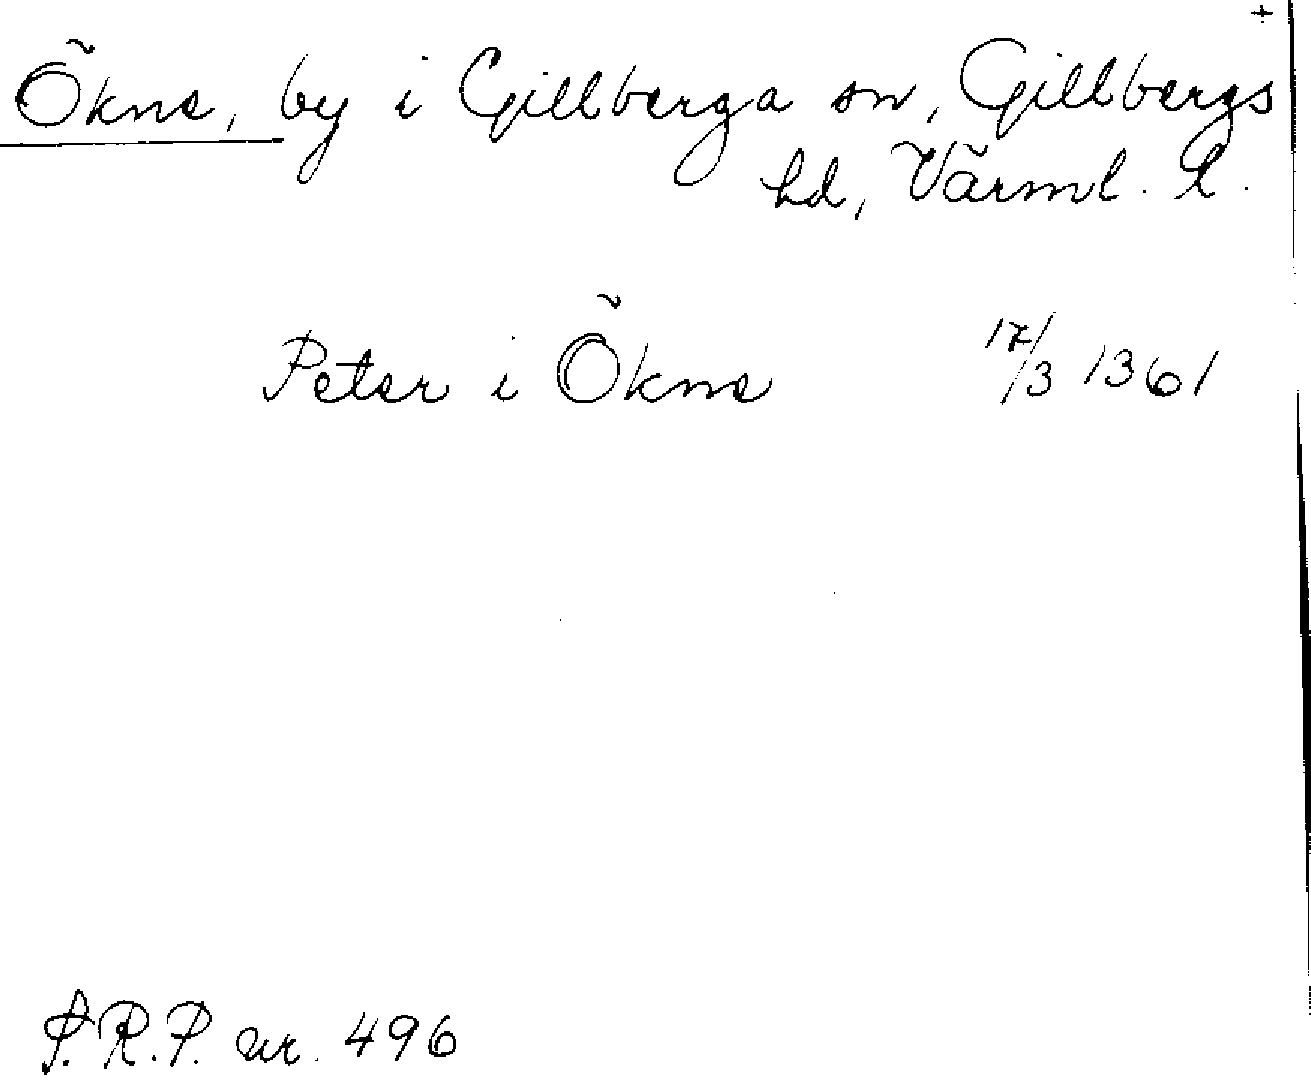 +
Ökne, by i Gillberga sn, Gillbergs
hd, Värml. l.
Peter i Ökne 17/3 1361
S.R.P. nr. 496